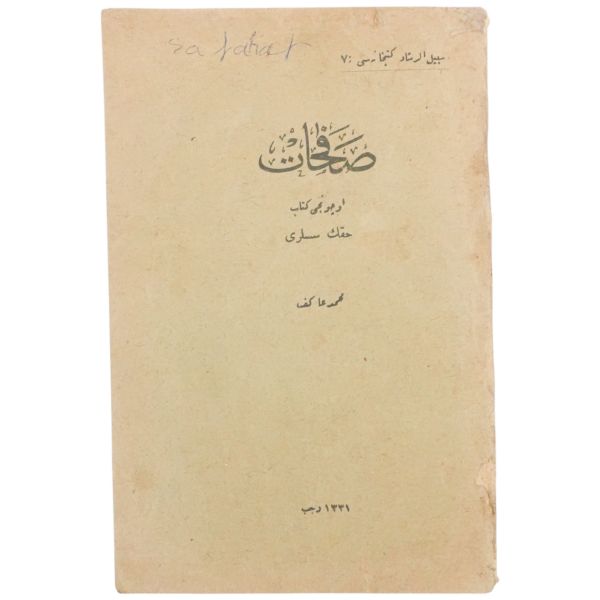 safahat
سبيل الرشاد كتبخانه سى : ٧
صفحات
اوچونجى كتاب
حقك سسلرى
محمد عاكف
١٣٣١ رجب